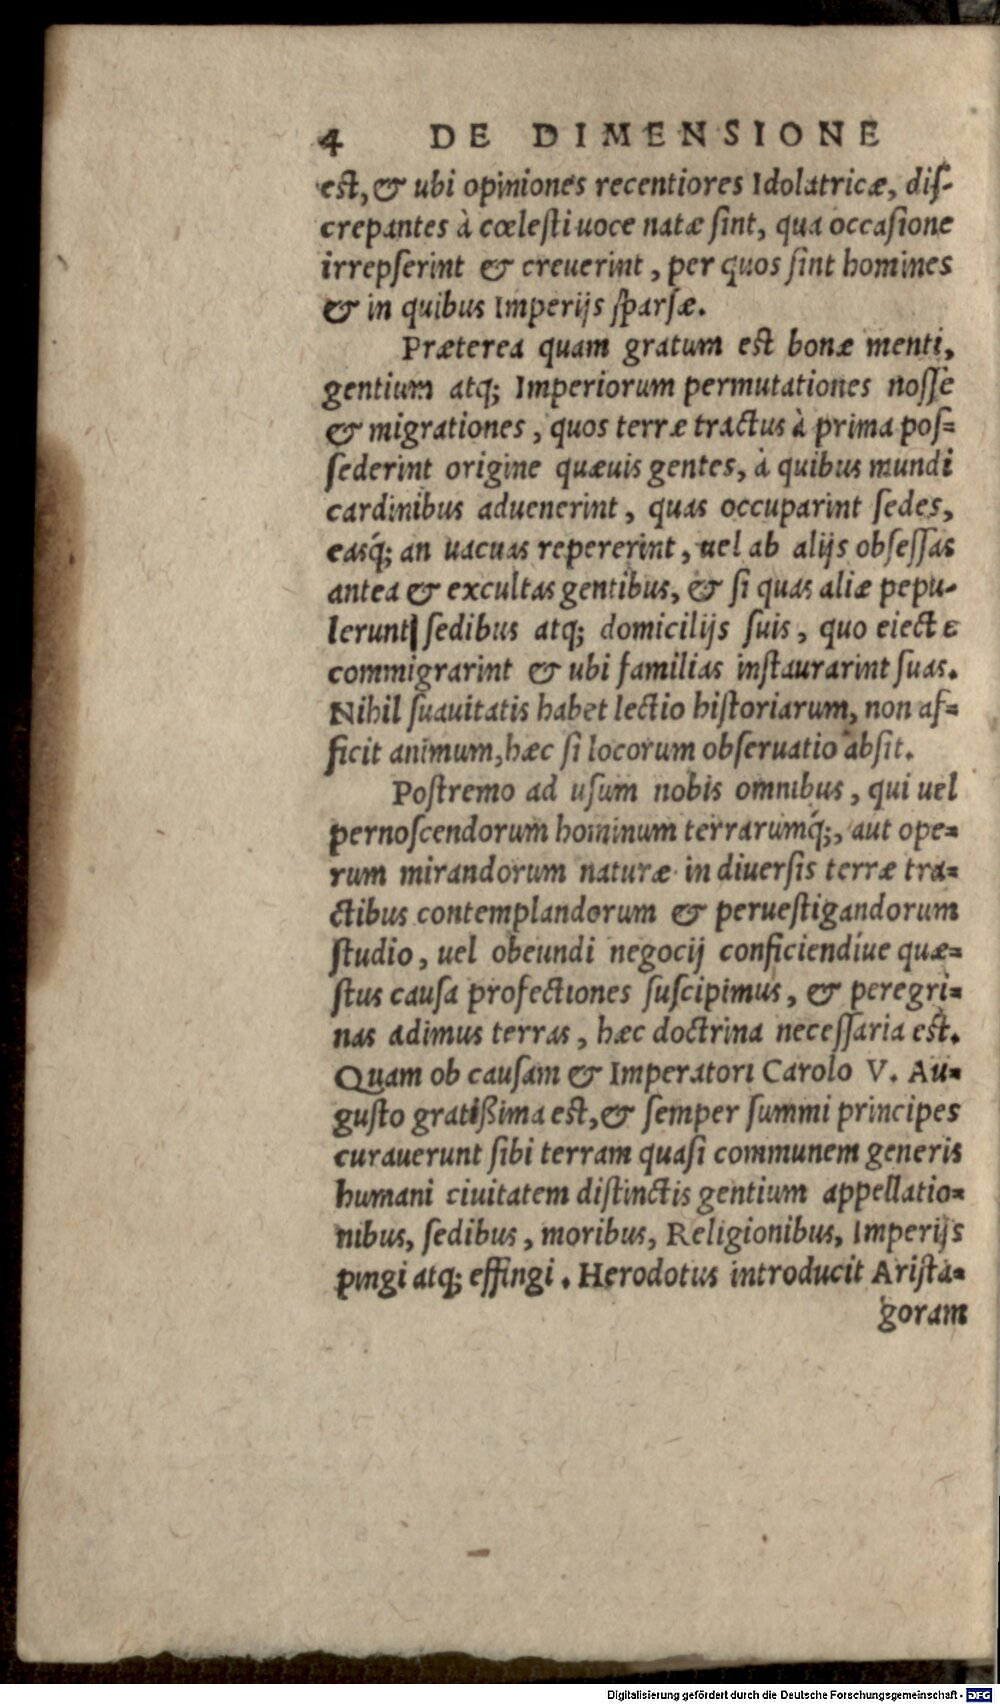 4 DE DIMENSIONE
est, & ubi opiniones recentiores Idolatricæ, diſ-
crepantes à cœleſti uoce natæ ſint, qua occaſione
irrepſerint & creuerint, per quos ſint homines
& in quibus Imperijs ſparſæ.
Præterea quam gratum est bonæ menti,
gentium atq; Imperiorum permutationes noſſe
& migrationes, quos terræ tractus à prima poſ=
ſederint origine quæuis gentes, à quibus mundi
cardinibus aduenerint, quas occuparint ſedes,
easq́; an uacuas repererint, uel ab alijs obſeſſas
antea & excultas gentibus, & ſi quas aliæ pepu-
lerunt ſedibus atq; domicilijs ſuis, quo eiectæ
commigrarint & ubi familias inſtaurarint ſuas.
Nihil ſuauitatis habet lectio hiſtoriarum, non af=
ficit animum, hæc ſi locorum obſeruatio abſit.
Poſtremo ad uſum nobis omnibus, qui uel
pernoſcendorum hominum terrarumq́;, aut ope=
rum mirandorum naturæ in diuerſis terræ tra=
ctibus contemplandorum & perueſtigandorum
ſtudio, uel obeundi negocij conficiendíue quæ=
ſtus cauſa profectiones ſuſcipimus, & peregri=
nas adimus terras, hæc doctrina neceſſaria est.
Quam ob cauſam & Imperatori Carolo V. Au=
guſto gratißima est, & ſemper ſummi principes
curauerunt ſibi terram quaſi communem generis
humani ciuitatem diſtinctis gentium appellatio=
nibus, ſedibus, moribus, Religionibus, Imperijs
pingi atq; effingi. Herodotus introducit Ariſta=
goram
Digitalisierung gefördert durch die Deutsche Forschungsgemeinschaft - DFG